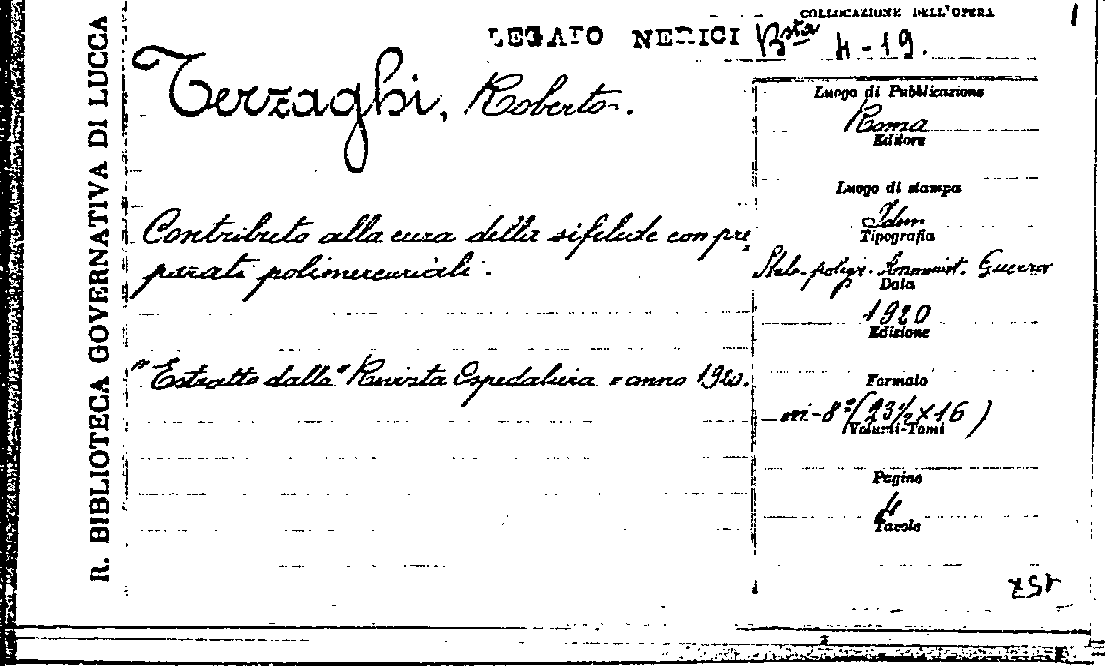 COLLOCAZIONE DELL'OPERA
LEGATO NERICI Bsta 4-19.
R. BIBLIOTECA GOVERNATIVA DI LUCCA
Terzaghi, Roberto.
Contributo alla cura della sifilide con pre
parati polimercuriali.
"Estratto dalla "Rivista Ospedaliera" anno 1920.
Luogo di Pubblicazione
Roma
Editore
Luogo di stampa
Idem
Tipografia
Stab. poligr. Amminist. Guerra
Data
1920
Edizione
Formato
in-8°(23½×16)
Volumi-Tomi
Pagine
4
Tavole